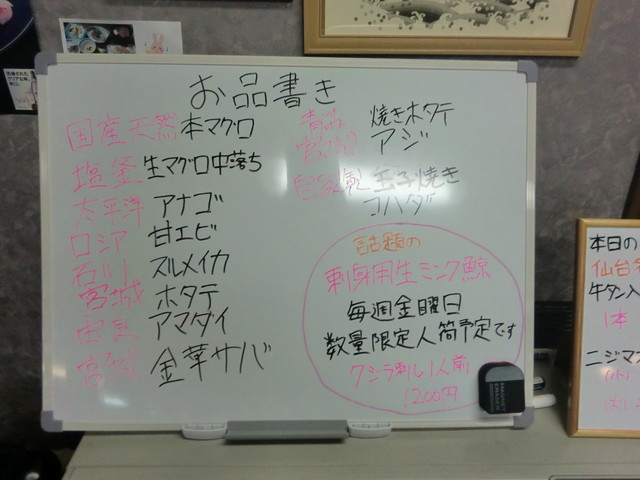 お品書き
国産天然 本マグロ
塩釜 生マグロ中落ち
太平洋 アナゴ
ロシア 甘エビ
石川 スルメイカ
宮城 ホタテ
アマダイ
宮城 金華サバ
青森 焼きホタテ
アジ
自家製 玉子焼き
コハダ
話題の
刺身用生ミンク鯨
毎週金曜日
数量限定入荷予定です
クジラ刺し1人前
1200円
本日の
仙台
牛タン入
1本
ニジマス